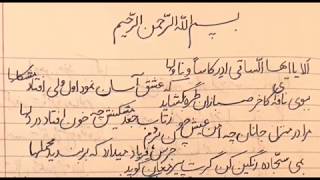 بسم الله الرحمن الرحیم
الا یا ایها الساقی ادر کاسا و ناولها
که عشق آسان نمود اول ولی افتاد مشکلها
بوی نافه کاخر صبا زان طره بگشاید
ز تاب جعد مشکینش چه خون افتاد در دلها
مرا در منزل جانان چه امن عیش چون هر دم
جرس فریاد میدارد که بربندید محملها
بمی سجاده رنگین کن گرت پیر مغان گوید